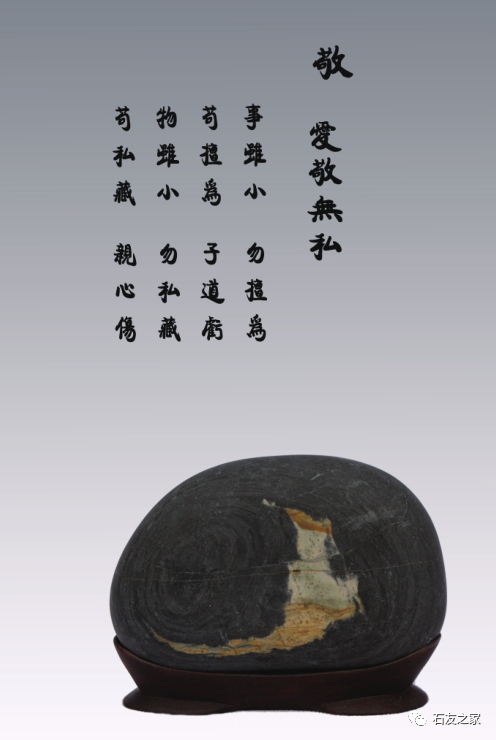 敬 愛敬無私
事雖小 勿擅為
苟擅為 子道虧
物雖小 勿私藏
苟私藏 親心傷
石友之家